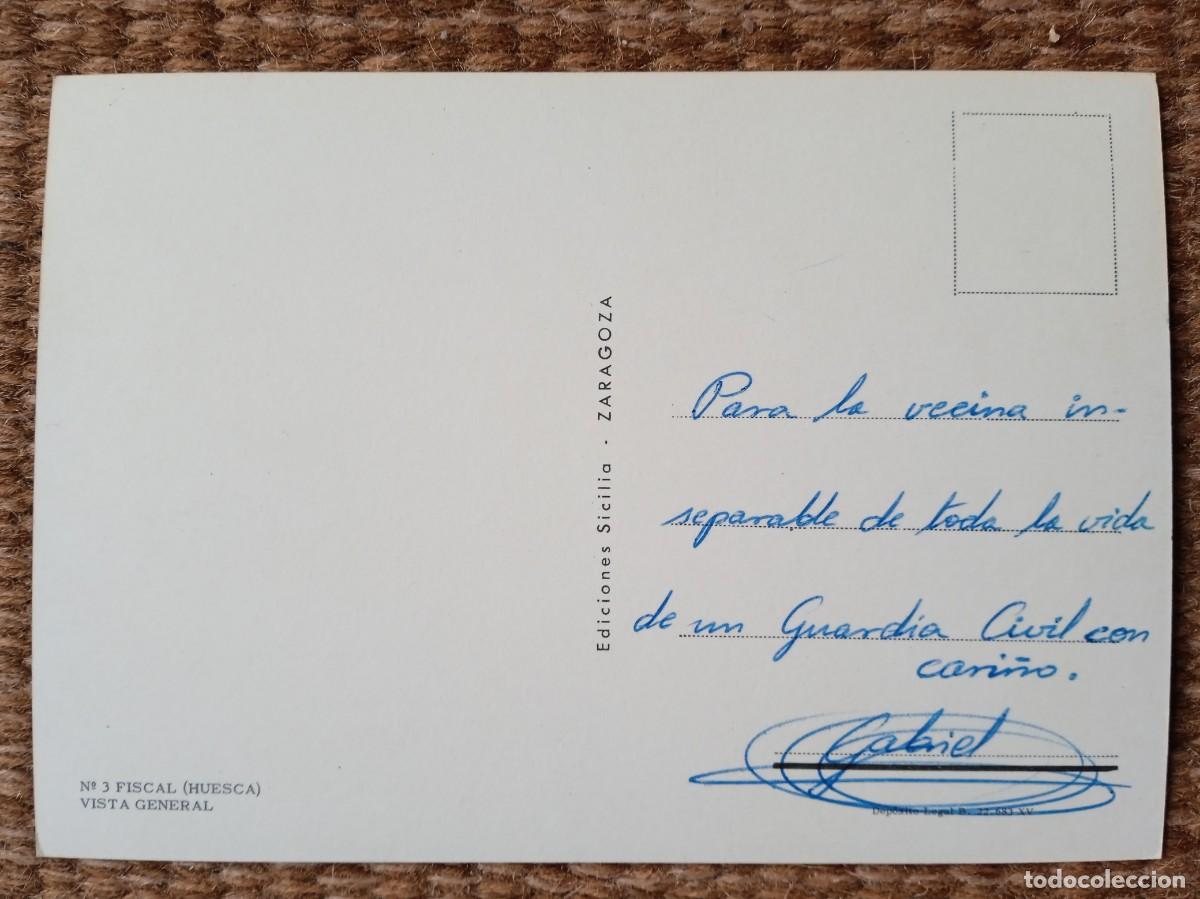 Ediciones Sicilia - ZARAGOZA
Para la vecina in-
separable de toda la vida
de un Guardia Civil con
cariño.
Gabriel
Nº 3 FISCAL (HUESCA)
VISTA GENERAL
Depósito Legal B. 22.683-XV
todocoleccion